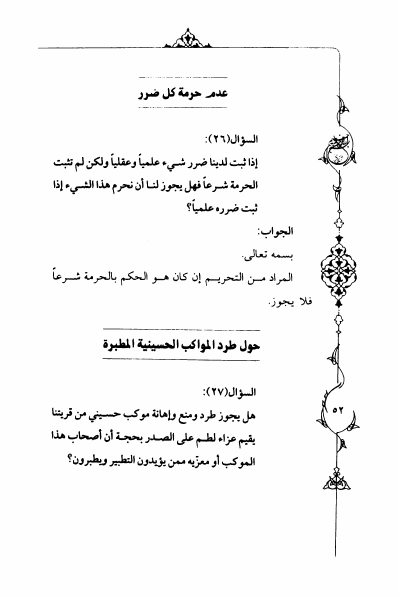 عدم حرمة كل ضرر
السؤال(٢٦):
إذا ثبت لدينا ضرر شيء علمياً وعقلياً ولكن لم تثبت
الحرمة شرعاً فهل يجوز لنا أن نحرم هذا الشيء إذا
ثبت ضرره علمياً؟
الجواب:
بسمه تعالى.
المراد من التحريم إن كان هو الحكم بالحرمة شرعاً
فلا يجوز.
حول طرد المواكب الحسينية المطبرة
السؤال(٢٧):
هل يجوز طرد ومنع وإهانة موكب حسيني من قريتنا
يقيم عزاء لطم على الصدر بحجة أن أصحاب هذا
الموكب أو معزّيه ممن يؤيدون التطبير ويطبرون؟
٥٢